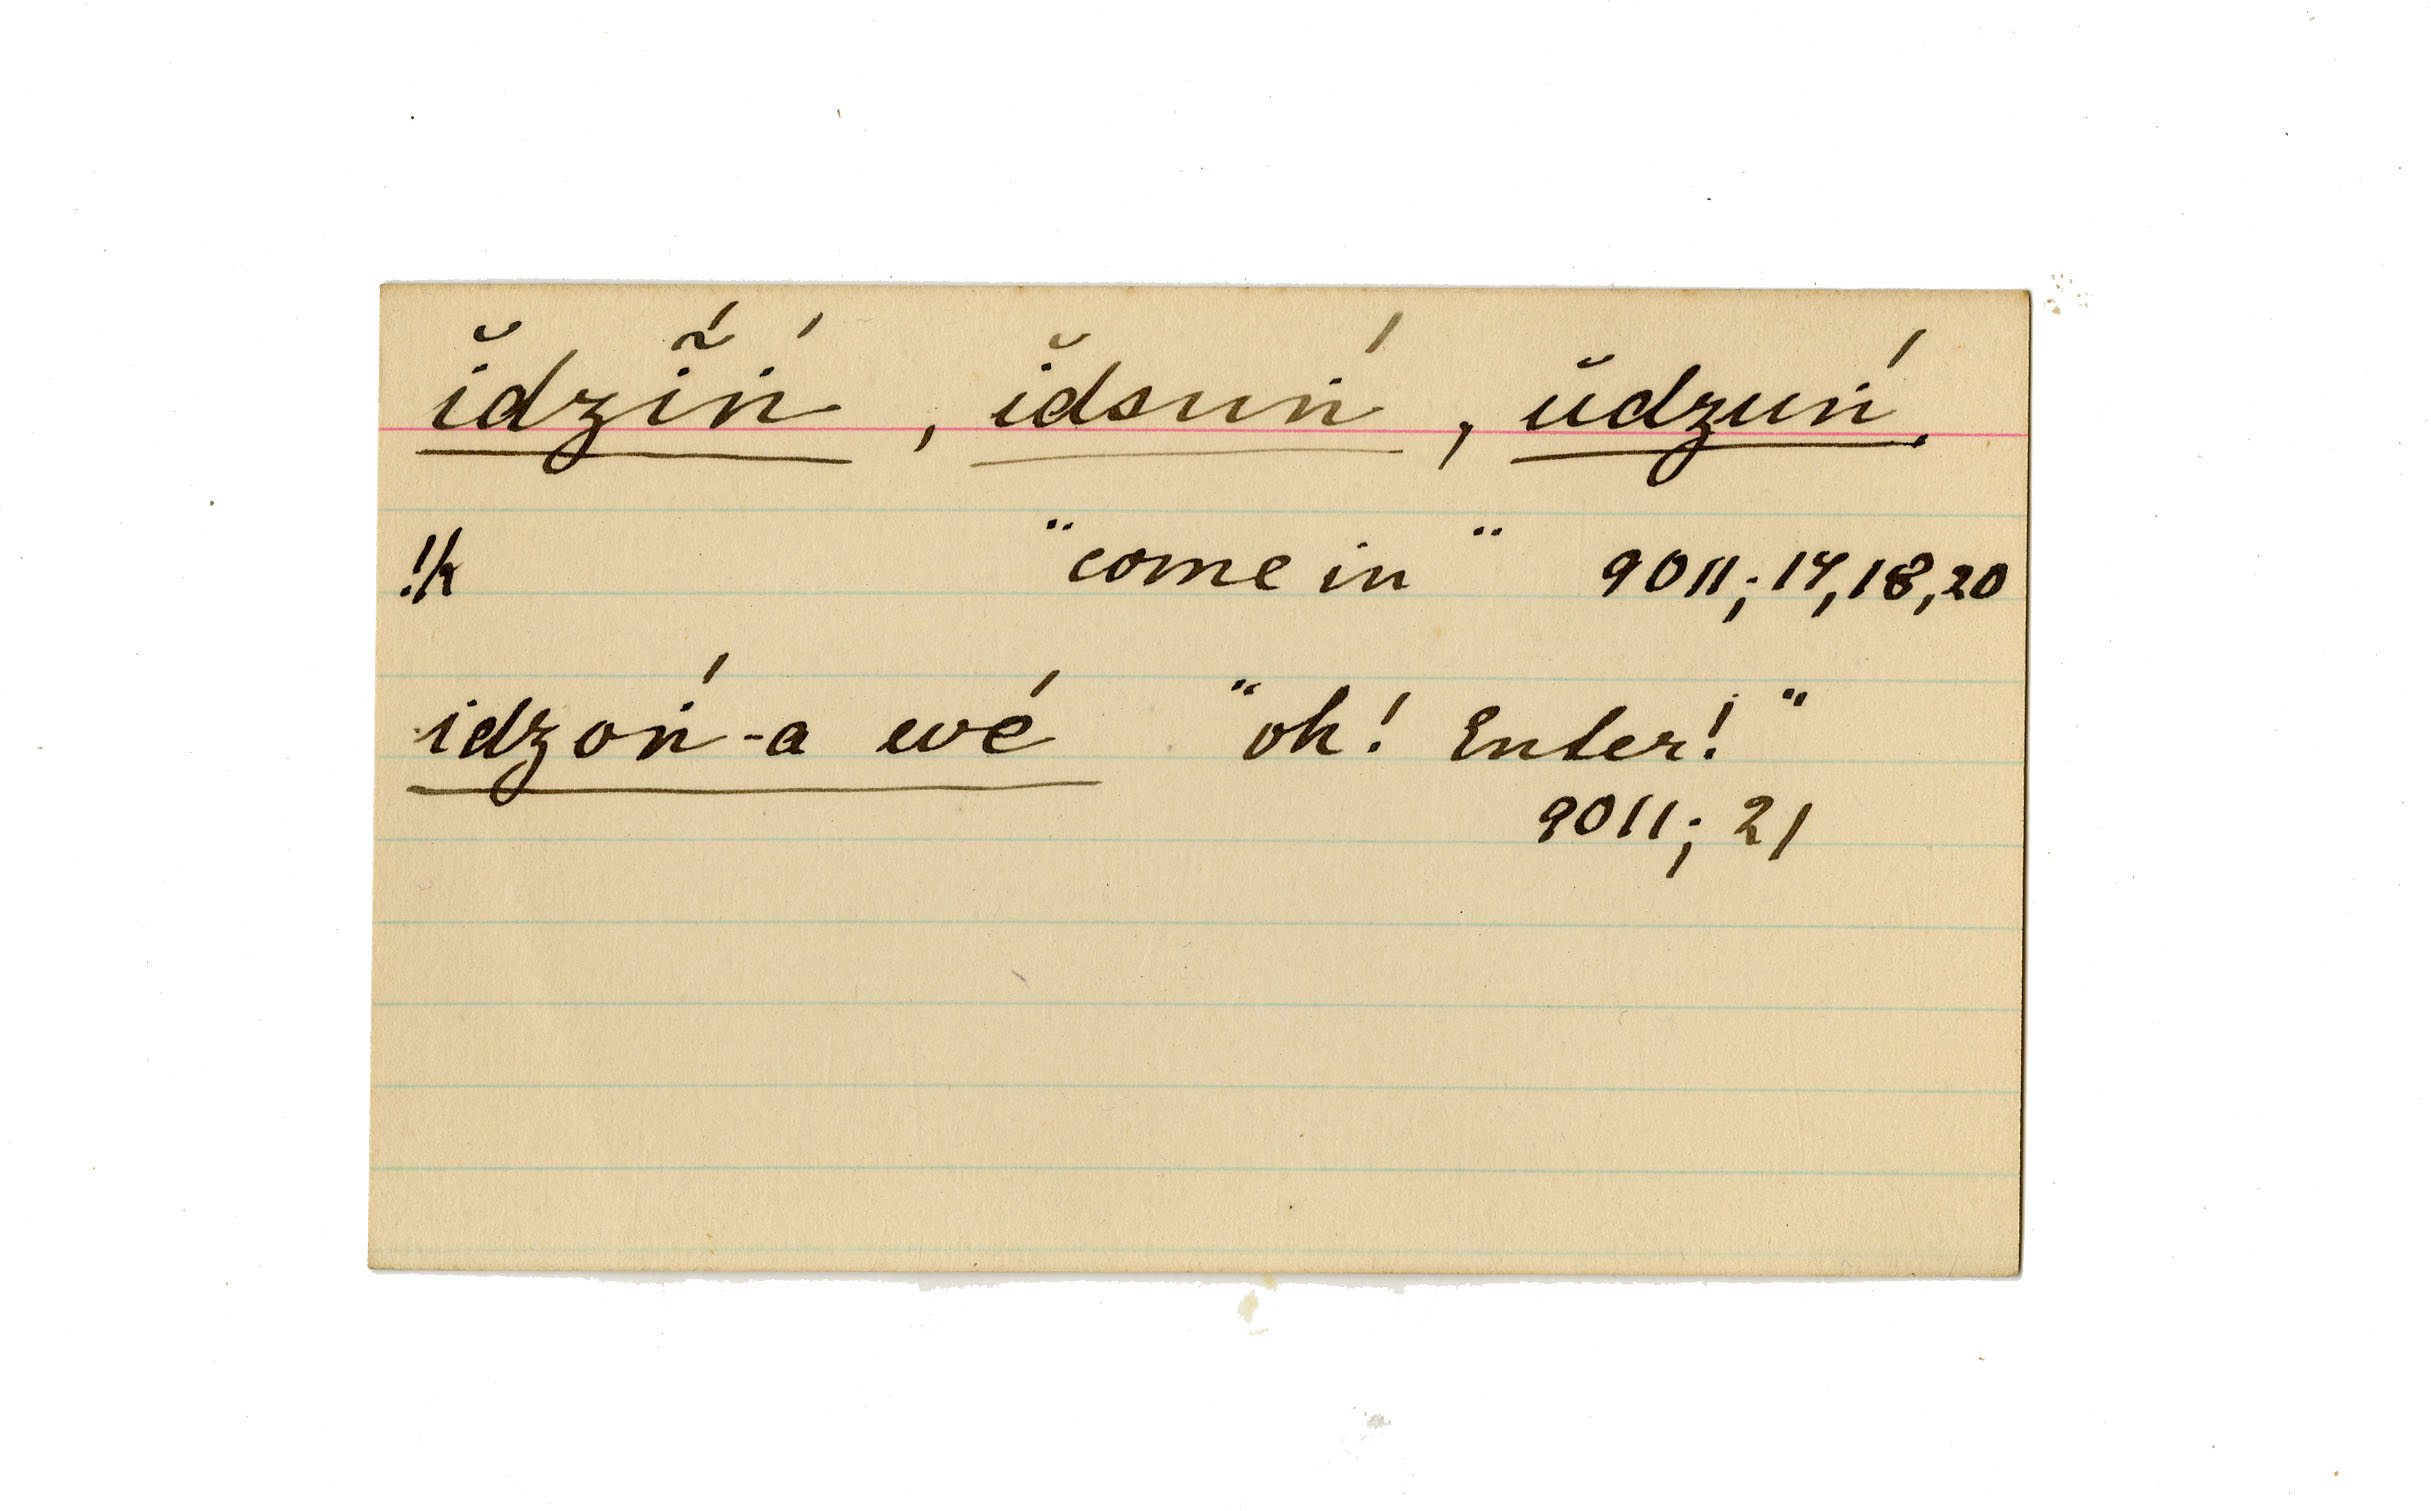 ĭdzĩ́ṅ́, ĭdsuṅ́, ŭdzuṅ́.
!k "come in" 9011; 14, 18, 20
idzoṅ́-a wé "oh! Enter!"
9011; 21